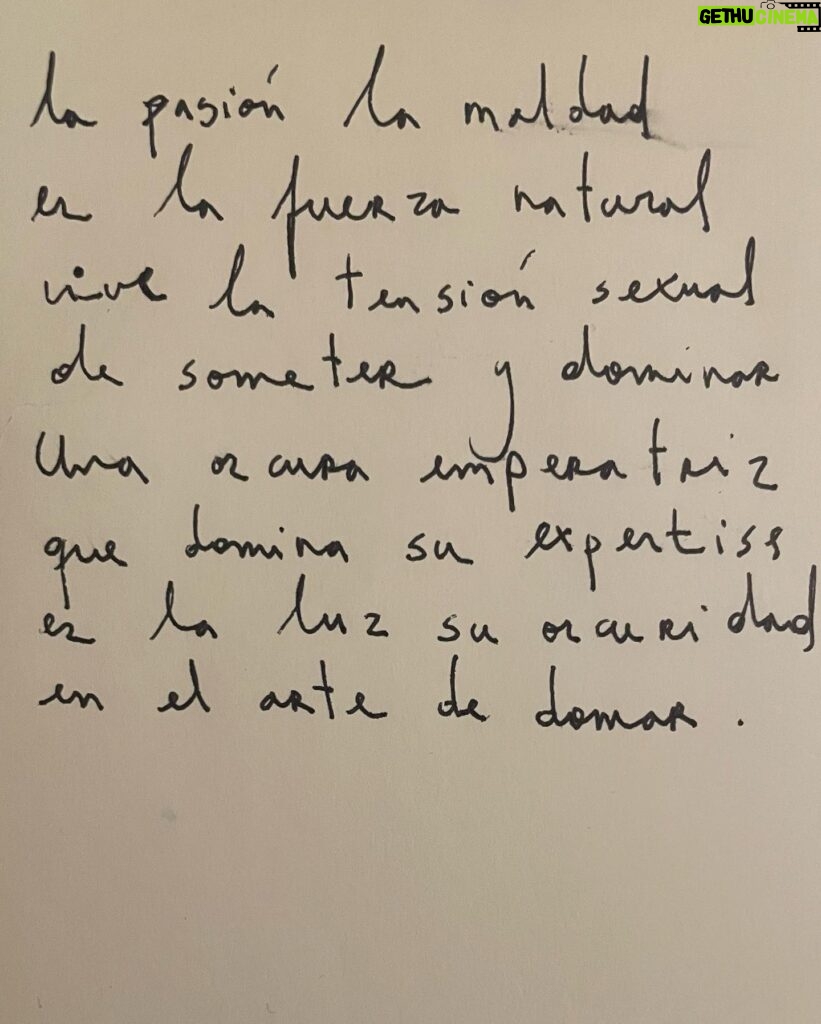 GETHU CINEMA
la pasión la maldad
es la fuerza natural
vive la tensión sexual
de someter y dominar
Una oscura emperatriz
que domina su expertise
es la luz su oscuridad
en el arte de domar.